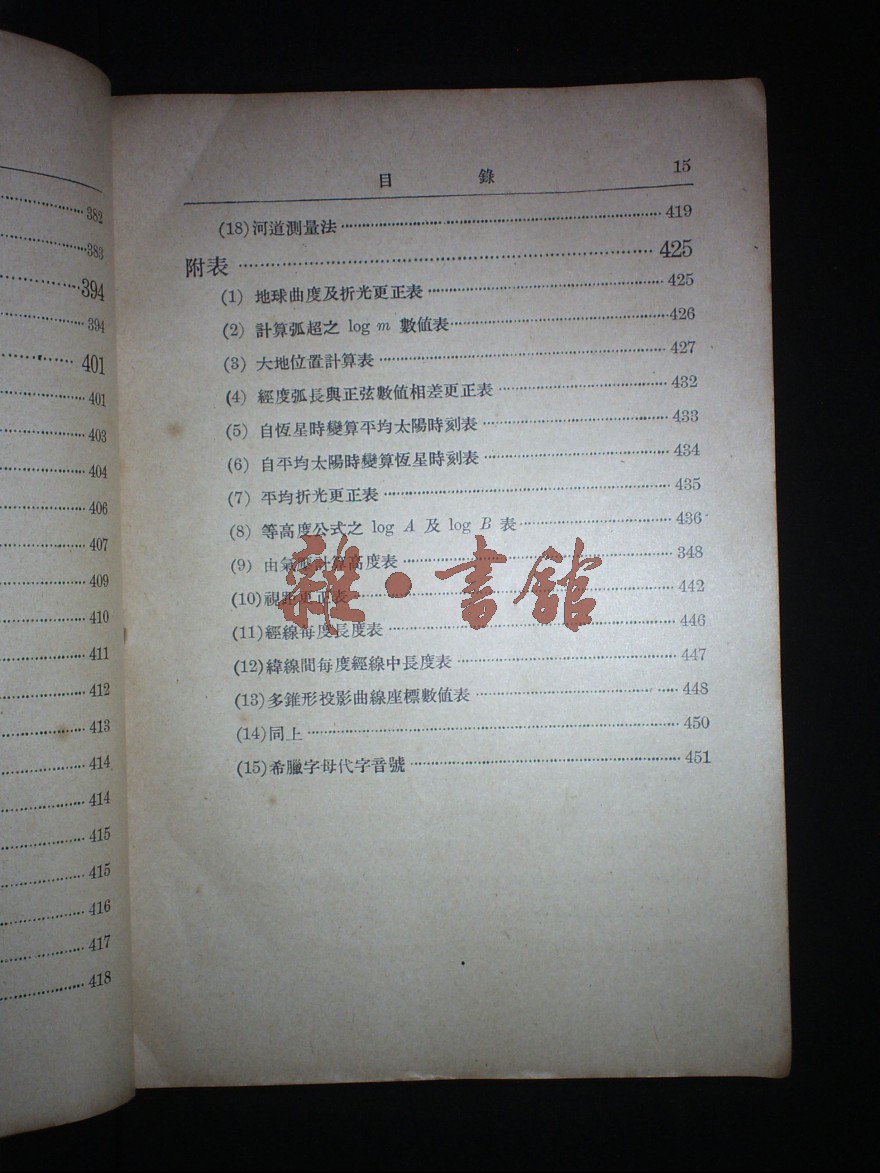 382
383
394
394
401
401
403
404
406
407
409
410
411
412
413
414
414
415
415
416
417
418
目 錄 15
(18)河道測量法 419
附表 425
(1) 地球曲度及折光更正表 425
(2) 計算弧超之 log m 數値表 426
(3) 大地位置計算表 427
(4) 經度弧長與正弦數値相差更正表 432
(5) 自恆星時變算平均太陽時刻表 433
(6) 自平均太陽時變算恆星時刻表 434
(7) 平均折光更正表 435
(8) 等高度公式之 log A 及 log B 表 436
(9) 由氣壓計算高度表 348
(10)視距更正表 442
(11)經線每度長度表 446
(12)緯線間每度經線中長度表 447
(13)多錐形投影曲線座標數値表 448
(14)同上 450
(15)希臘字母代字音號 451
雜·書館